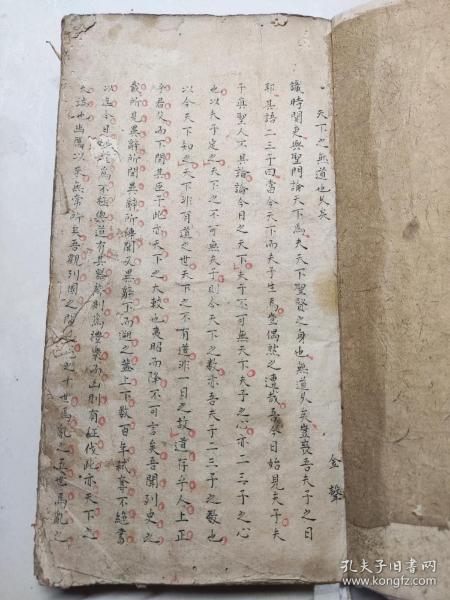 天下之無道也久矣
金聲
識時關吏與聖門論天下焉夫天下聖賢之身也無道久矣豈喪吾夫子之日
耶其語二三子曰當今天下而夫子生焉豈偶然之遭哉吾今日始見夫子夫
子真聖人不具論論今日之天下夫天下不可無天下夫子之心亦二三子之心
也以夫子定之天下之不可無夫子則今天下之數亦吾夫子二三子之數也
以今天下知之天下非有道之世天下之不有道非一日之故道存乎人上正
乎君父而下閑其臣子此亦天下之大較也東昭而降不可言矣吾聞列史之
載所見異辭所聞異辭所傳聞又異辭下而溯之蓋上下數百年弒奪不絕書
以迄今日
有其
則為禮樂而出則有征伐此亦天下之
大
也
無常所
吾觀列國之間
之十世焉亂之五世焉亂之
孔夫子旧书网
book.kongfz.com